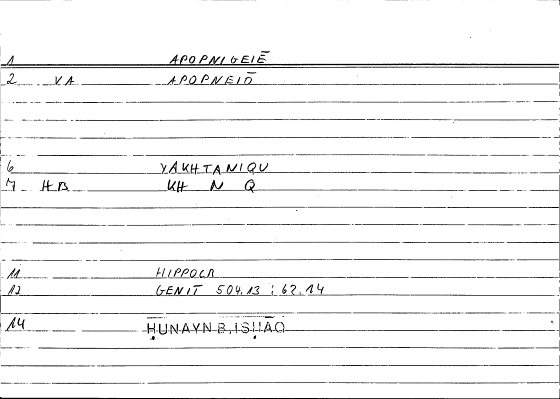 1 APOPNIGEIĒ
2 VA APOPNEIŌ
6 YAKHTANIQU
7 HB KH N Q
11 HIPPOCR
12 GENIT 504.13 ; 62.14
14 ḤUNAYN B.ISḤĀQ